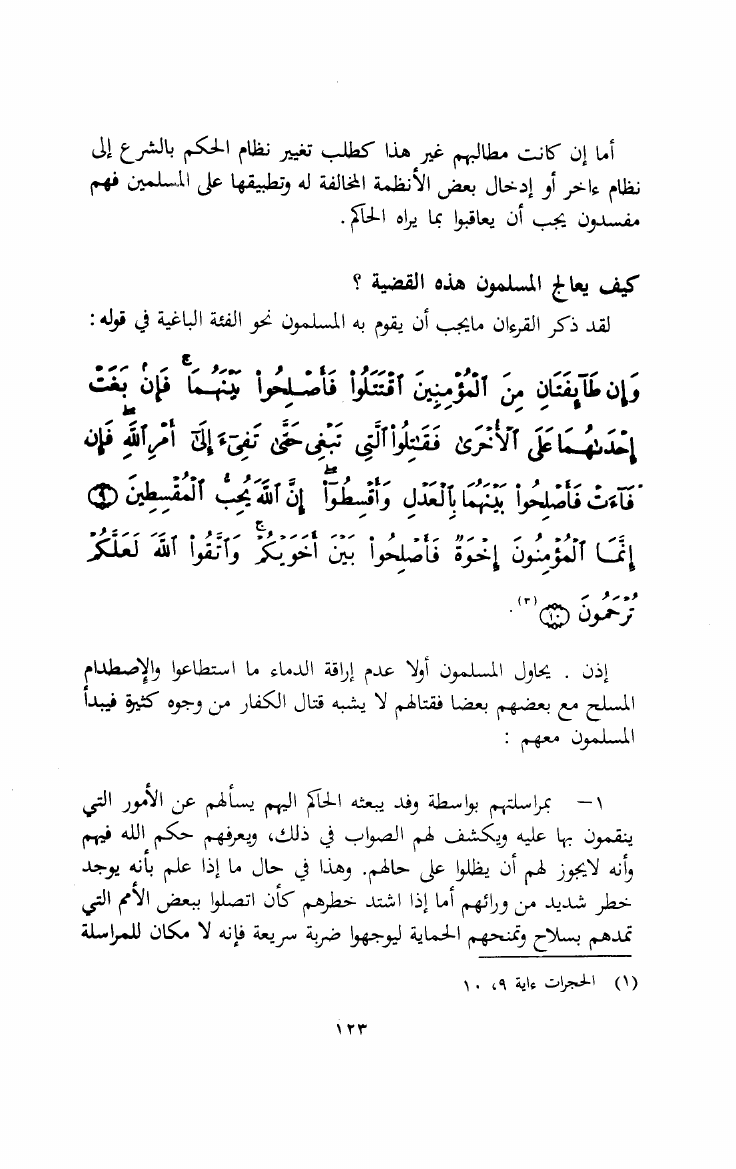 أما إن كانت مطالبهم غير هذا كطلب تغيير نظام الحكم بالشرع إلى
نظام ءاخر أو إدخال بعض الأنظمة المخالفة له وتطبيقها على المسلمين فهم
مفسدون يجب أن يعاقبوا بما يراه الحاكم .
كيف يعالج المسلمون هذه القضية ؟
لقد ذكر القرءان مايجب أن يقوم به المسلمون نحو الفئة الباغية في قوله :
وَإِن طَآئِفَتَانِ مِنَ ٱلْمُؤْمِنِينَ ٱقْتَتَلُوا۟ فَأَصْلِحُوا۟ بَيْنَهُمَا ۖ فَإِنۢ بَغَتْ
إِحْدَىٰهُمَا عَلَى ٱلْأُخْرَىٰ فَقَٰتِلُوا۟ ٱلَّتِى تَبْغِى حَتَّىٰ تَفِىٓءَ إِلَىٰٓ أَمْرِ ٱللَّهِ ۚ فَإِن
فَآءَتْ فَأَصْلِحُوا۟ بَيْنَهُمَا بِٱلْعَدْلِ وَأَقْسِطُوٓا۟ ۖ إِنَّ ٱللَّهَ يُحِبُّ ٱلْمُقْسِطِينَ ۝٩
إِنَّمَا ٱلْمُؤْمِنُونَ إِخْوَةٌ فَأَصْلِحُوا۟ بَيْنَ أَخَوَيْكُمْ ۚ وَٱتَّقُوا۟ ٱللَّهَ لَعَلَّكُمْ
تُرْحَمُونَ ۝١٠ (٣) .
إذن . يحاول المسلمون أولا عدم إراقة الدماء ما استطاعوا والإصطدام
المسلح مع بعضهم بعضا فقتالهم لا يشبه قتال الكفار من وجوه كثيرة فيبدأ
المسلمون معهم :
١ – بمراسلتهم بواسطة وفد يبعثه الحاكم اليهم يسألهم عن الأمور التي
ينقمون بها عليه ويكشف لهم الصواب في ذلك، ويعرفهم حكم الله فيهم
وأنه لايجوز لهم أن يظلوا على حالهم. وهذا في حال ما إذا علم بأنه يوجد
خطر شديد من ورائهم أما إذا اشتد خطرهم كأن اتصلوا ببعض الأمم التي
تمدهم بسلاح وتمنحهم الحماية ليوجهوا ضربة سريعة فإنه لا مكان للمراسلة
(١) الحجرات ءاية ٩، ١٠
١٢٣